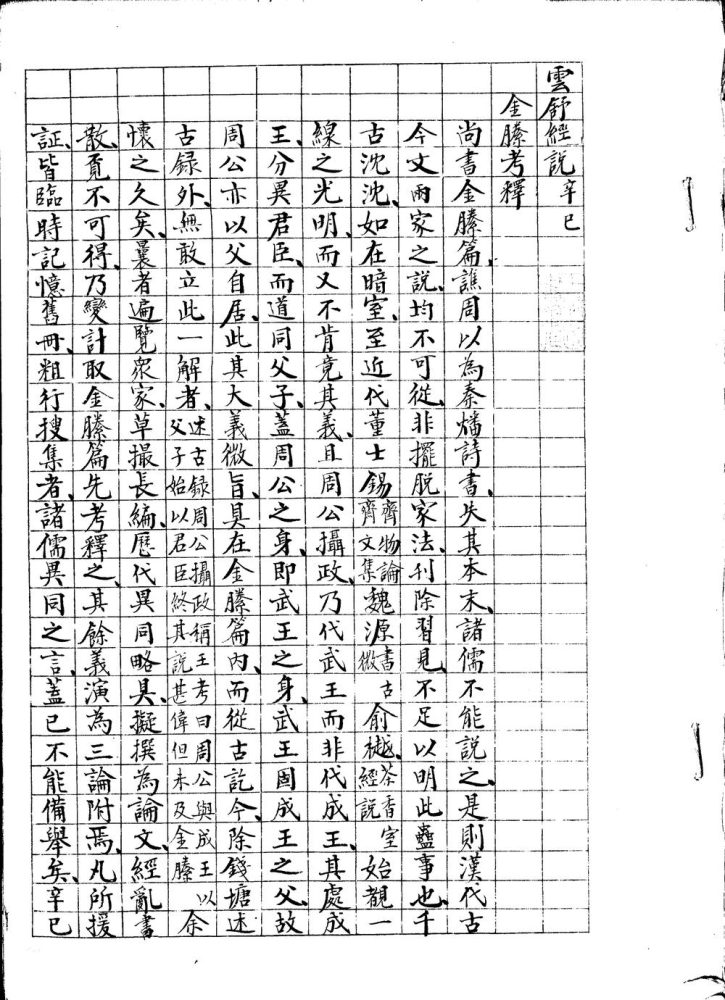 雲舒經說 辛巳
金縢考釋
尚書金縢篇、譙周以為秦燔詩書、失其本末、諸儒不能說之、是則漢代古
今文兩家之說、均不可從、非擺脫家法、刊除習見、不足以明此蠱事也、千
古沈沈、如在暗室、至近代董士錫齊物論齋文集魏源書古微俞樾、茶香室經說始覩一
線之光明、而又不肯竟其義、且周公攝政、乃代武王而非代成王、其處成
王、分異君臣、而道同父子、蓋周公之身、即武王之身、武王固成王之父、故
周公亦以父自居、此其大義微旨、具在金縢篇內、而從古訖今、除錢塘述
古録外、無敢立此一解者、述古録周公攝政稱王考曰周公與成王以父子始以君臣終其說甚偉但未及金縢余
懷之久矣、曩者遍覽眾家、草撮長編、歷代異同略具、擬撰為論文、經亂書
散、覓不可得、乃變計取金縢篇先考釋之、其餘義演為三論附焉、凡所援
証、皆臨時記憶舊冊、粗行搜集者、諸儒異同之言、蓋已不能備舉矣、辛巳